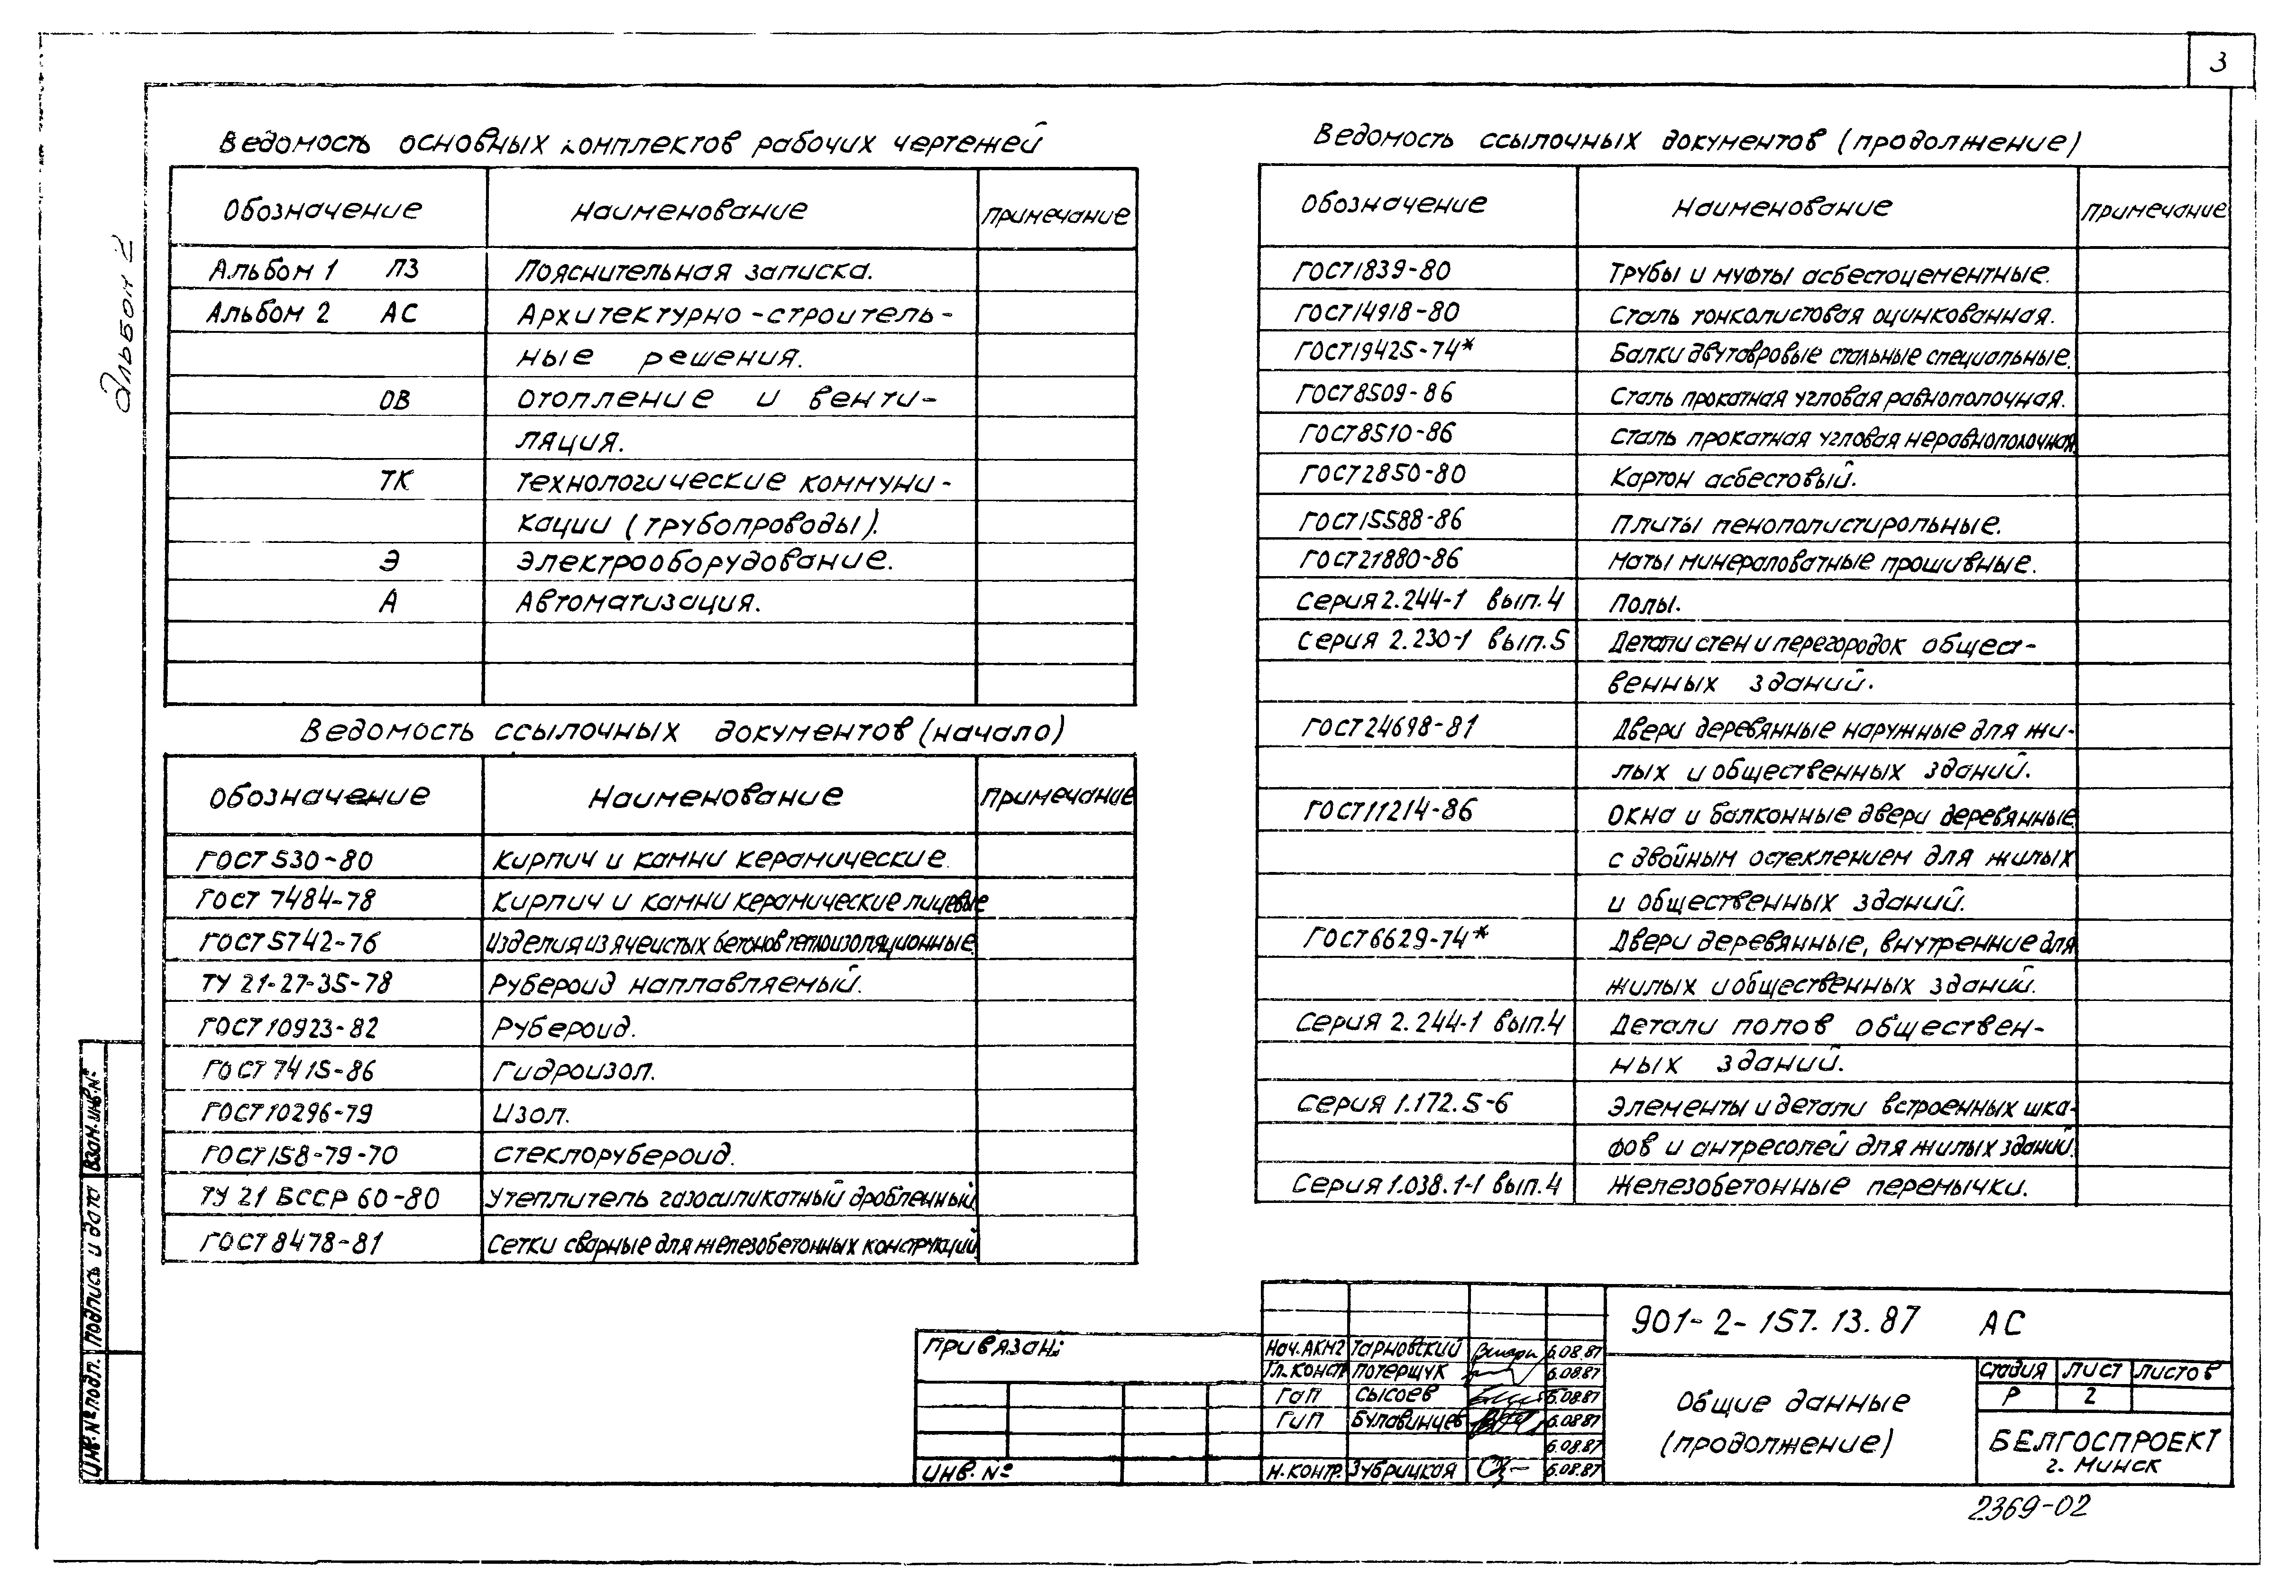 3
Альбом 2
Ведомость основных комплектов рабочих чертежей
Обозначение Наименование Примечание
Альбом 1 ПЗ Пояснительная записка.
Альбом 2 АС Архитектурно-строитель-
ные решения.
ОВ Отопление и венти-
ляция.
ТК Технологические коммуни-
кации (трубопроводы).
Э Электрооборудование.
А Автоматизация.
Ведомость ссылочных документов (начало)
Обозначение Наименование Примечание
ГОСТ 530-80 Кирпич и камни керамические.
ГОСТ 7484-78 Кирпич и камни керамические лицевые
ГОСТ 5742-76 Изделия из ячеистых бетонов теплоизоляционные.
ТУ 21-27-35-78 Рубероид наплавляемый.
ГОСТ 10923-82 Рубероид.
ГОСТ 7415-86 Гидроизол.
ГОСТ 10296-79 Изол.
ГОСТ 158-79-70 Стеклорубероид.
ТУ 21 БССР 60-80 Утеплитель газосиликатный дробленный.
ГОСТ 8478-81 Сетки сварные для железобетонных конструкций
Ведомость ссылочных документов (продолжение)
Обозначение Наименование Примечание
ГОСТ 1839-80 Трубы и муфты асбестоцементные.
ГОСТ 14918-80 Сталь тонколистовая оцинкованная.
ГОСТ 19425-74* Балки двутавровые стальные специальные.
ГОСТ 8509-86 Сталь прокатная угловая равнополочная.
ГОСТ 8510-86 Сталь прокатная угловая неравнополочная.
ГОСТ 2850-80 Картон асбестовый.
ГОСТ 15588-86 Плиты пенополистирольные.
ГОСТ 21880-86 Маты минераловатные прошивные.
Серия 2.244-1 вып. 4 Полы.
Серия 2.230-1 вып. 5 Детали стен и перегородок общест-
венных зданий.
ГОСТ 24698-81 Двери деревянные наружные для жи-
лых и общественных зданий.
ГОСТ 11214-86 Окна и балконные двери деревянные
с двойным остеклением для жилых
и общественных зданий.
ГОСТ 6629-74* Двери деревянные, внутренние для
жилых и общественных зданий.
Серия 2.244-1 вып. 4 Детали полов обществен-
ных зданий.
Серия 1.172.5-6 Элементы и детали встроенных шка-
фов и антресолей для жилых зданий.
Серия 1.038.1-1 вып. 4 Железобетонные перемычки.
Взам. инв. №
Подпись и дата
Инв. № подл.
Привязан:
Инв. №
Нач. АКМ2 Тарновский 6.08.87
Гл. конст Потерщук 6.08.87
ГАП Сысоев 6.08.87
ГИП Булавинцев 6.08.87
6.08.87
Н. контр. Зубрицкая 6.08.87
901-2-157.13.87 АС
Общие данные
(продолжение)
Стадия Лист Листов
Р 2
БЕЛГОСПРОЕКТ
г. Минск
2369-02